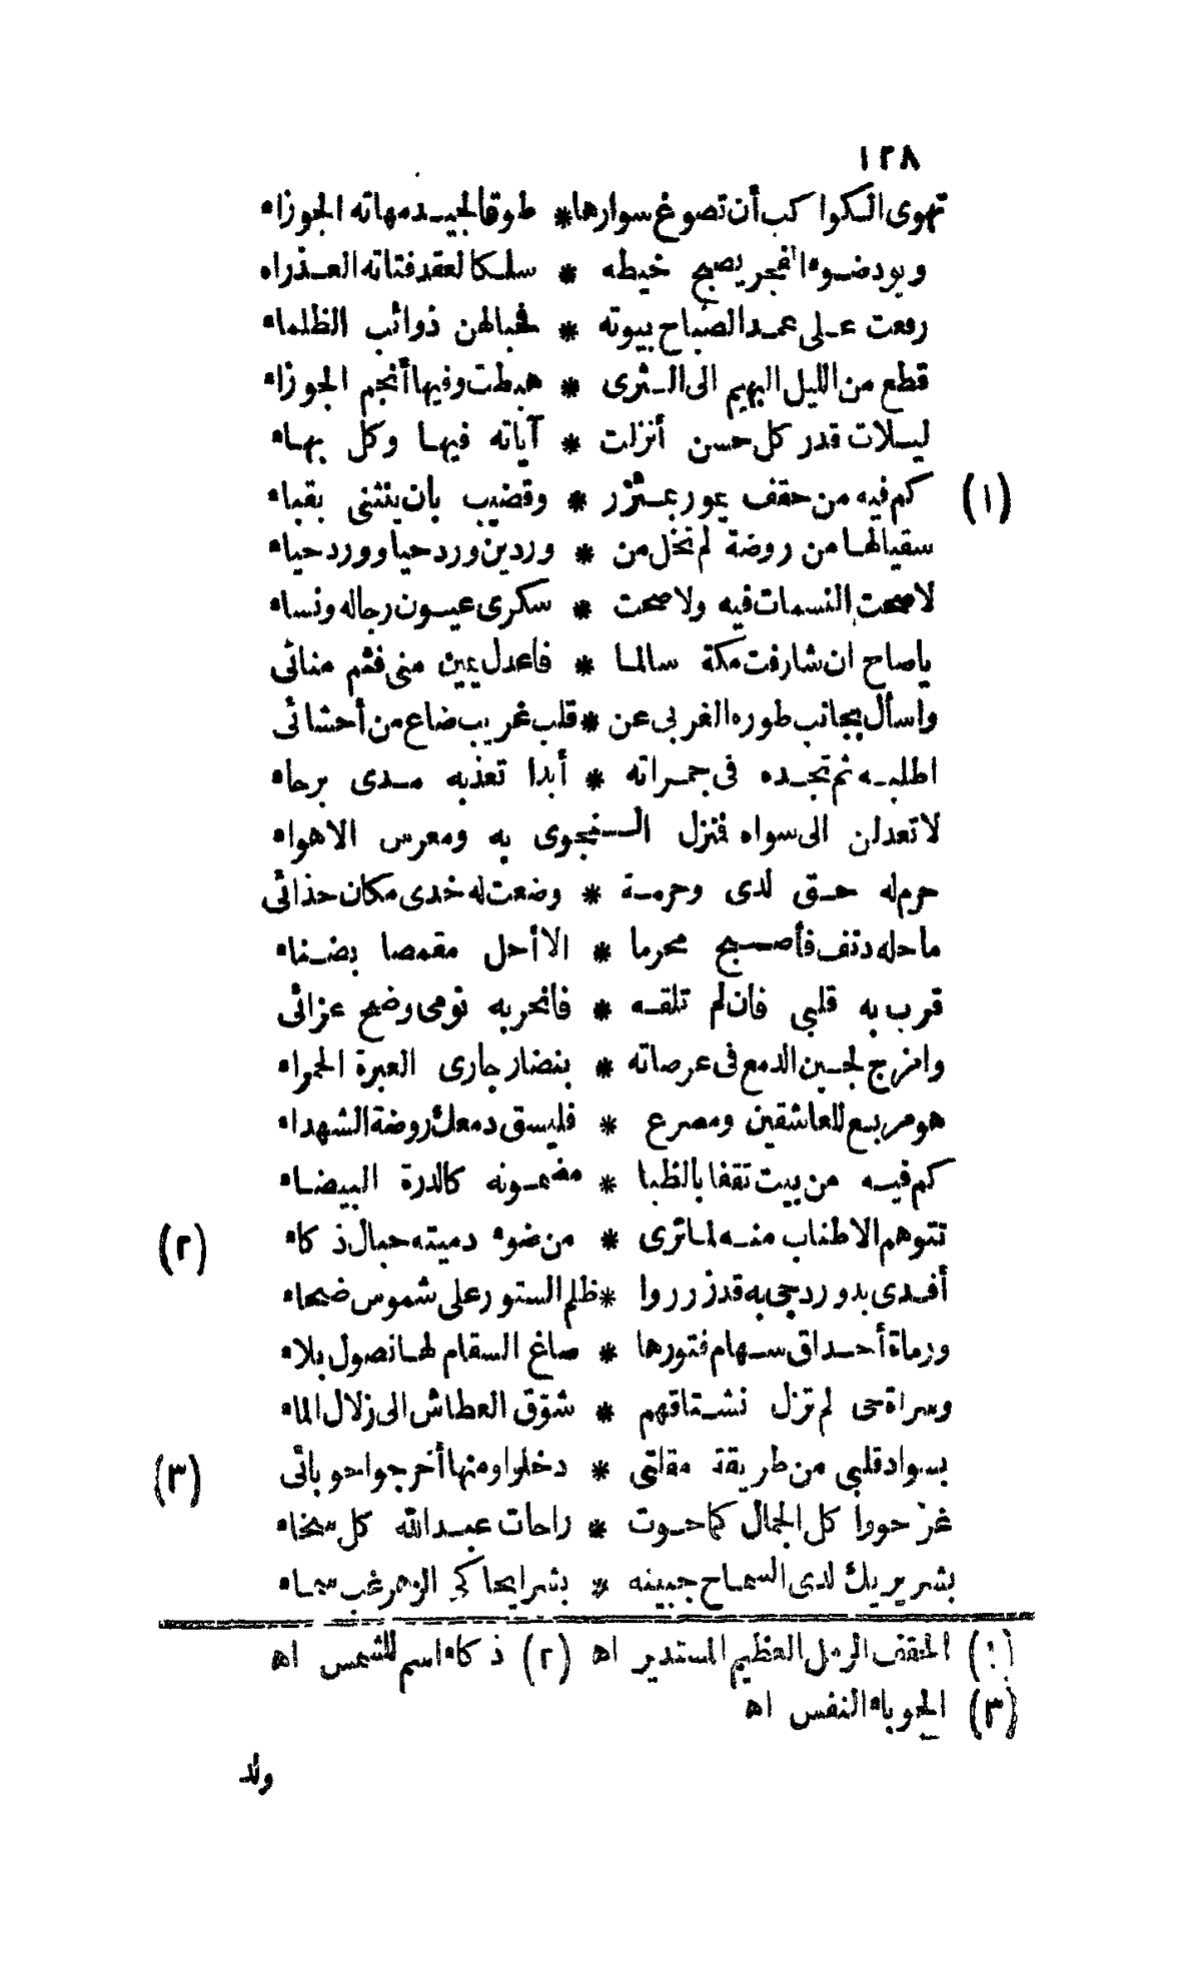 ١٣٨
تهوى الكواكب أن تصوغ سوارها * طوقا لجيد مهاته الجوزاء
ويود ضوء الفجر يصبح خيطه * سلكا لعقد فتاته العذراء
رفعت على عمد الصباح بيوته * فحبالهن ذوائب الظلماء
قطع من الليل البهيم الى الثرى * هبطت وفيها أنجم الجوزاء
ليلات قدر كل حسن أنزلت * آياته فيها وكل بهاء
كم فيه من حقف يمور بمئزر * وقضيب بان ينثنى بقباء (١)
سقيا لها من روضة لم تخل من * وردين ورد حيا وورد حياء
لا صحت النسمات فيه ولا صحت * سكرى عيون رجاله ونساء
يا صاح ان شارفت مكة سالما * فاعدل يمين منى فثم منائى
واسأل بجانب طوره الغربى عن * قلب غريب ضاع من أحشائى
اطلبه ثم تجده فى جمراته * أبدا تعذبه مدى برحاء
لا تعدلن الى سواه فمنزل النجوى به ومعرس الاهواء
حرم له حق لدى وحرمة * وضعت له خدى مكان حذائى
ما حله دنف فأصبح محرما * الا أحل مقمصا بضناء
قرب به قلبى فان لم تلقه * فانحر به نومى وضح عزائى
وامزج لجين الدمع فى عرصاته * بنضار جارى العبرة الحمراء
هو مربع للعاشقين ومصرع * فليسق دمعك روضة الشهداء
كم فيه من بيت تقفا بالظبا * مضمونه كالدرة البيضاء
تتوهم الاطناب منه لما ترى * من ضوء دميته حبال ذكاء (٢)
أفدى بدور دجى به قد زرروا * ظلم الستور على شموس ضحاء
ورماة أحداق سهام فتورها * صاغ السقام لها نصول بلاء
وسراة حى لم تزل نشتاقهم * شوق العطاش الى زلال الماء
بسواد قلبى من طريقة مقلتى * دخلوا ومنها أخرجوا حوبائى (٣)
غر حووا كل الجمال كما حوت * راحات عبد الله كل سخاء
بشر يريك لدى السماح جبينه * بشرا يحاكى الزهر غب سماء
(١) الحقف الرمل العظيم المستدير اه (٢) ذكاء اسم للشمس اه
(٣) الحوباء النفس اه
ولد